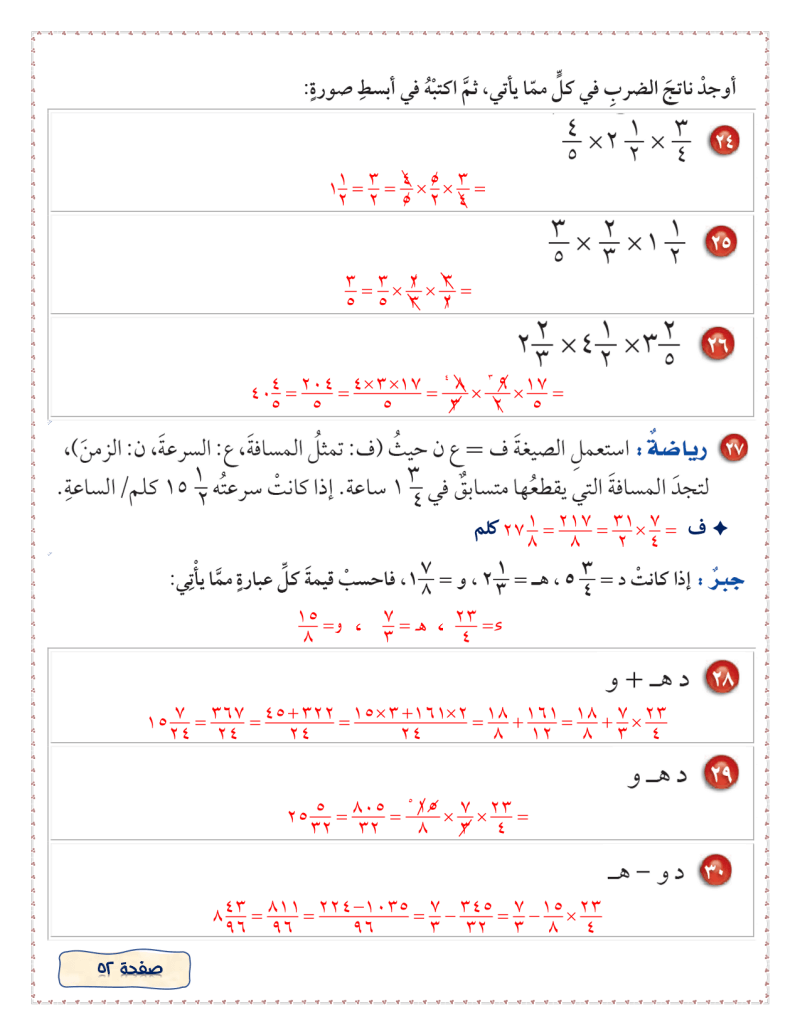 أوجدْ ناتجَ الضربِ في كلٍّ ممّا يأتي، ثمَّ اكتبْهُ في أبسطِ صورةٍ:
٢٤ ٣/٤ × ٢ ١/٢ × ٤/٥
= ٣/٤ × ٥/٢ × ٤/٥ = ٣/٢ = ١ ١/٢
٢٥ ١ ١/٢ × ٢/٣ × ٣/٥
= ٣/٢ × ٢/٣ × ٣/٥ = ٣/٥
٢٦ ٣ ٢/٥ × ٤ ١/٢ × ٢ ٢/٣
= ١٧/٥ × ٩/٢ ٣ × ٨/٣ ٤ = ١٧×٣×٤/٥ = ٢٠٤/٥ = ٤٠ ٤/٥
٢٧ رياضةٌ : استعملِ الصيغةَ ف = ع ن حيثُ (ف: تمثلُ المسافةَ، ع: السرعةَ، ن: الزمنَ)،
لتجدَ المسافةَ التي يقطعُها متسابقٌ في ١ ٣/٤ ساعة. إذا كانتْ سرعتُه ١٥ ١/٢ كلم/ الساعةِ.
ف = ٧/٤ × ٣١/٢ = ٢١٧/٨ = ٢٧ ١/٨ كلم
جبرٌ : إذا كانتْ د = ٥ ٣/٤ ، هـ = ٢ ١/٣ ، و = ١ ٧/٨، فاحسبْ قيمةَ كلِّ عبارةٍ ممَّا يأْتِي:
ء= ٢٣/٤ ، هـ = ٧/٣ ، و= ١٥/٨
٢٨ د هـ + و
٢٣/٤ × ٧/٣ + ١٨/٨ = ١٦١/١٢ + ١٨/٨ = ٢×١٦١+٣×١٥/٢٤ = ٣٢٢+٤٥/٢٤ = ٣٦٧/٢٤ = ١٥ ٧/٢٤
٢٩ د هـ و
= ٢٣/٤ × ٧/٣ × ١٥/٨ ٥ = ٨٠٥/٣٢ = ٢٥ ٥/٣٢
٣٠ د و − هـ
٢٣/٤ × ١٥/٨ − ٧/٣ = ٣٤٥/٣٢ − ٧/٣ = ١٠٣٥−٢٢٤/٩٦ = ٨١١/٩٦ = ٨ ٤٣/٩٦
صفحة ٥٢